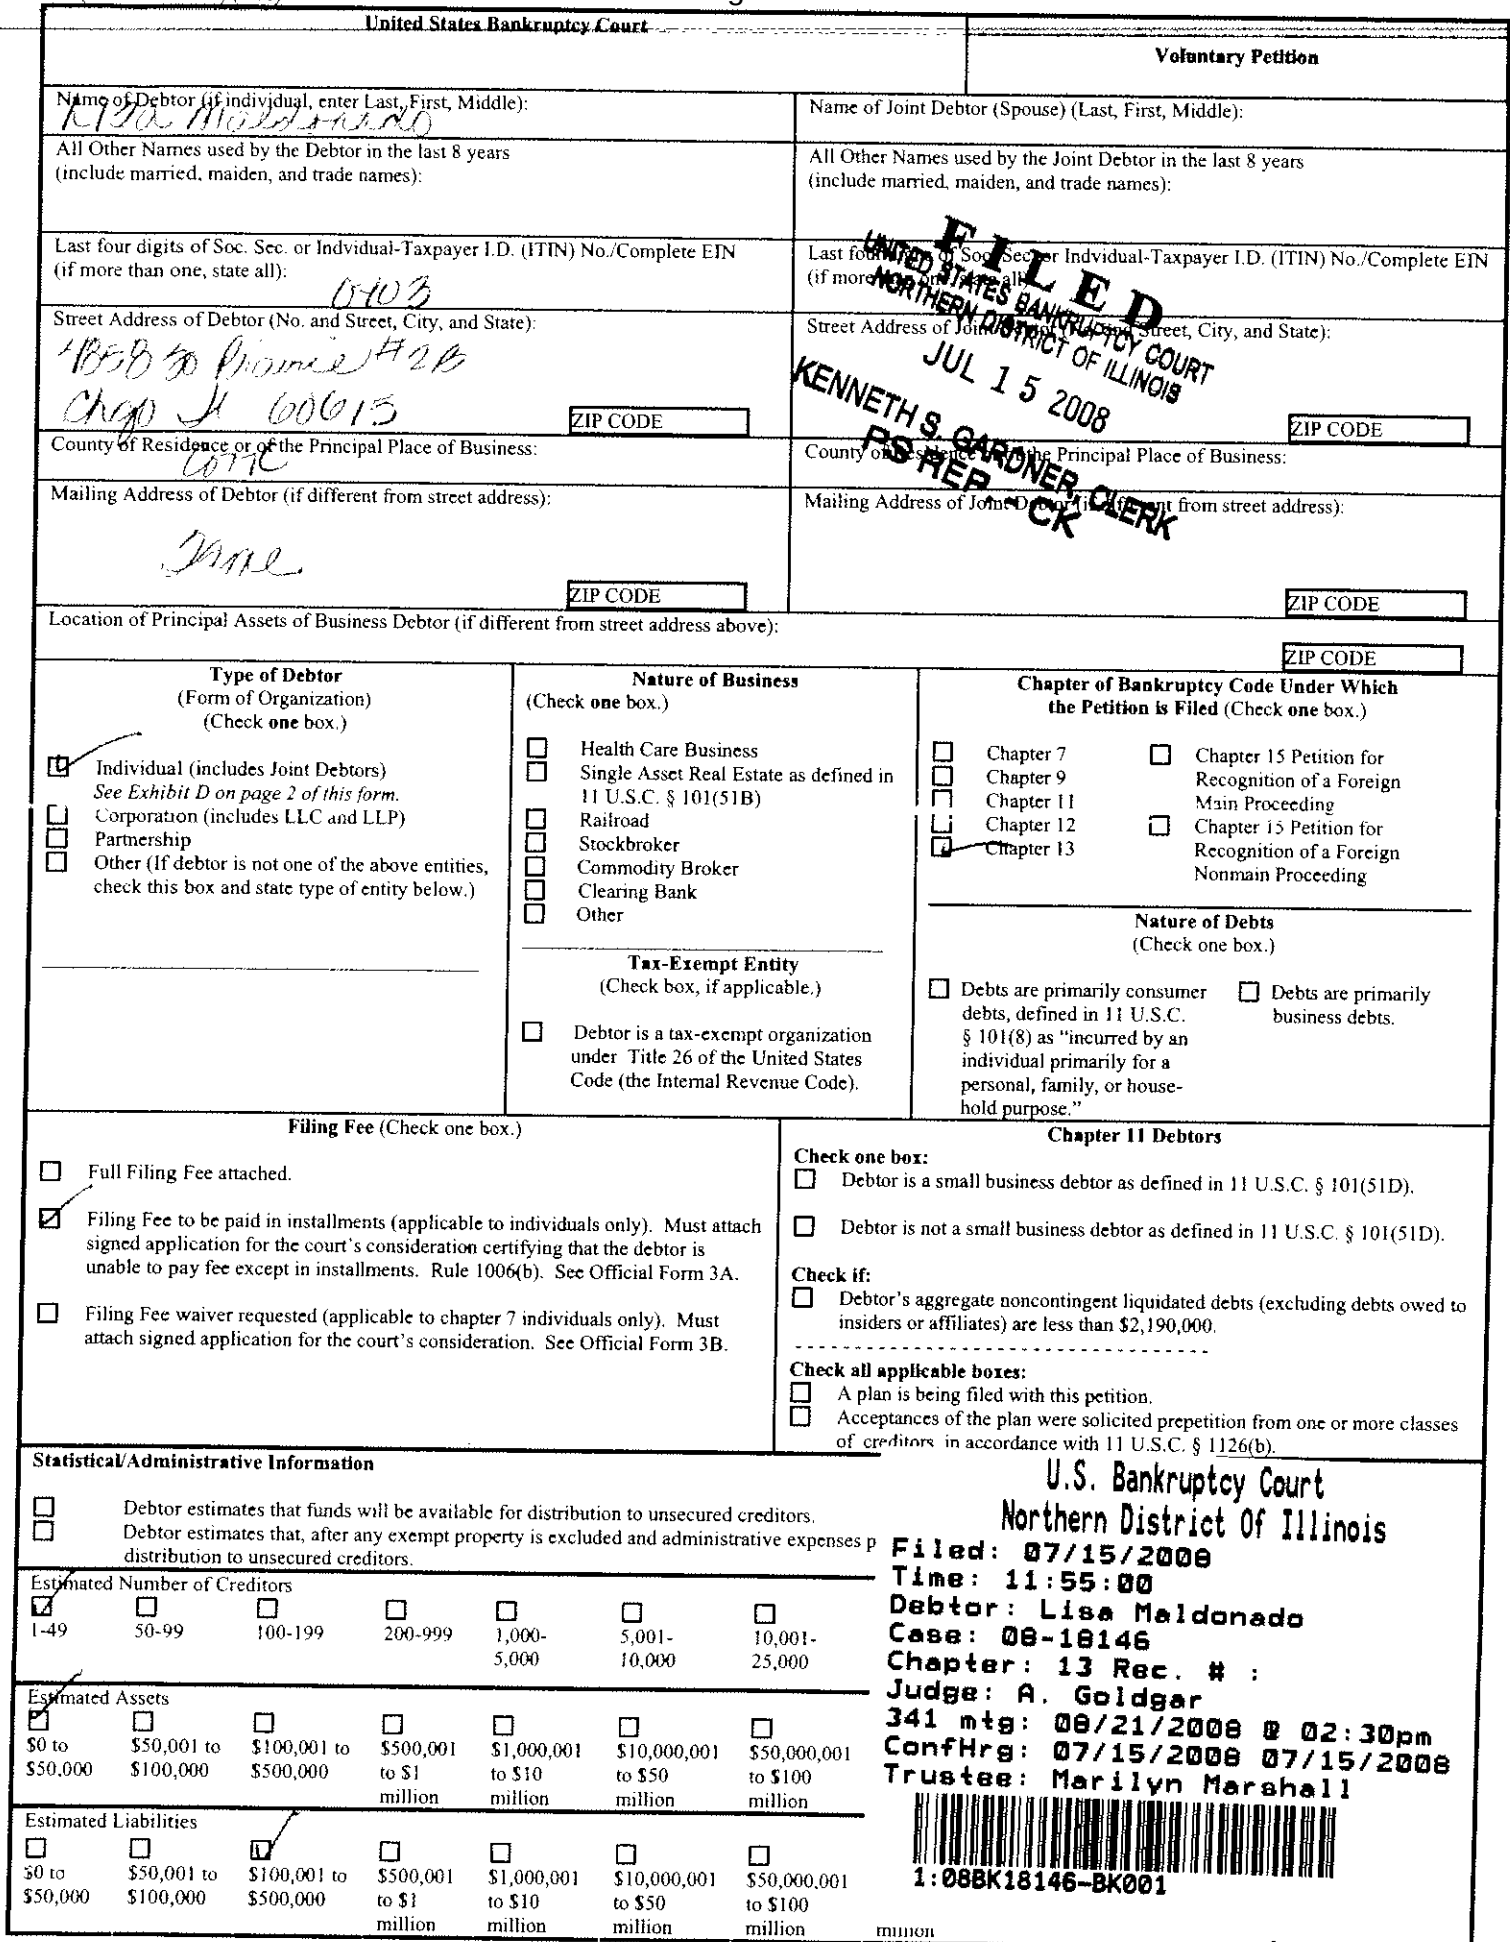 United States Bankruptcy Court
Voluntary Petition
Name of Debtor (if individual, enter Last, First, Middle):
Lisa Maldonado
Name of Joint Debtor (Spouse) (Last, First, Middle):
All Other Names used by the Debtor in the last 8 years
(include married, maiden, and trade names):
All Other Names used by the Joint Debtor in the last 8 years
(include married, maiden, and trade names):
Last four digits of Soc. Sec. or Indvidual-Taxpayer I.D. (ITIN) No./Complete EIN
(if more than one, state all):
Last four of Soc. Sec. or Indvidual-Taxpayer I.D. (ITIN) No./Complete EIN
(if more one, state all)
FILED
UNITED STATES BANKRUPTCY COURT
NORTHERN DISTRICT OF ILLINOIS
JUL 15 2008
KENNETH S. GARDNER, CLERK
PS REP. - CK
Street Address of Debtor (No. and Street, City, and State):
#2B
Chgo Il 60615
ZIP CODE
Street Address of Joint Debtor (No. and Street, City, and State):
ZIP CODE
County of Residence or of the Principal Place of Business:
Cook
County of Residence the Principal Place of Business:
Mailing Address of Debtor (if different from street address):
Same
ZIP CODE
Mailing Address of Joint Debtor (if different from street address):
ZIP CODE
Location of Principal Assets of Business Debtor (if different from street address above):
ZIP CODE
Type of Debtor
(Form of Organization)
(Check one box.)
Individual (includes Joint Debtors)
See Exhibit D on page 2 of this form.
Corporation (includes LLC and LLP)
Partnership
Other (If debtor is not one of the above entities,
check this box and state type of entity below.)
Nature of Business
(Check one box.)
Health Care Business
Single Asset Real Estate as defined in
11 U.S.C. § 101(51B)
Railroad
Stockbroker
Commodity Broker
Clearing Bank
Other
Tax-Exempt Entity
(Check box, if applicable.)
Debtor is a tax-exempt organization
under Title 26 of the United States
Code (the Internal Revenue Code).
Chapter of Bankruptcy Code Under Which
the Petition is Filed (Check one box.)
Chapter 7
Chapter 9
Chapter 11
Chapter 12
Chapter 13
Chapter 15 Petition for
Recognition of a Foreign
Main Proceeding
Chapter 15 Petition for
Recognition of a Foreign
Nonmain Proceeding
Nature of Debts
(Check one box.)
Debts are primarily consumer
debts, defined in 11 U.S.C.
§ 101(8) as "incurred by an
individual primarily for a
personal, family, or house-
hold purpose."
Debts are primarily
business debts.
Filing Fee (Check one box.)
Full Filing Fee attached.
Filing Fee to be paid in installments (applicable to individuals only). Must attach
signed application for the court's consideration certifying that the debtor is
unable to pay fee except in installments. Rule 1006(b). See Official Form 3A.
Filing Fee waiver requested (applicable to chapter 7 individuals only). Must
attach signed application for the court's consideration. See Official Form 3B.
Chapter 11 Debtors
Check one box:
Debtor is a small business debtor as defined in 11 U.S.C. § 101(51D).
Debtor is not a small business debtor as defined in 11 U.S.C. § 101(51D).
Check if:
Debtor's aggregate noncontingent liquidated debts (excluding debts owed to
insiders or affiliates) are less than $2,190,000.
Check all applicable boxes:
A plan is being filed with this petition.
Acceptances of the plan were solicited prepetition from one or more classes
of creditors, in accordance with 11 U.S.C. § 1126(b).
Statistical/Administrative Information
Debtor estimates that funds will be available for distribution to unsecured creditors.
Debtor estimates that, after any exempt property is excluded and administrative expenses p
distribution to unsecured creditors.
Estimated Number of Creditors
1-49 50-99 100-199 200-999 1,000- 5,001- 10,001-
5,000 10,000 25,000
Estimated Assets
$0 to $50,001 to $100,001 to $500,001 $1,000,001 $10,000,001 $50,000,001
$50,000 $100,000 $500,000 to $1 to $10 to $50 to $100
million million million million
Estimated Liabilities
$0 to $50,001 to $100,001 to $500,001 $1,000,001 $10,000,001 $50,000,001
$50,000 $100,000 $500,000 to $1 to $10 to $50 to $100
million million million million million
U.S. Bankruptcy Court
Northern District Of Illinois
Filed: 07/15/2008
Time: 11:55:00
Debtor: Lisa Maldonado
Case: 08-18146
Chapter: 13 Rec. # :
Judge: A. Goldgar
341 mtg: 08/21/2008 @ 02:30pm
ConfHrg: 07/15/2008 07/15/2008
Trustee: Marilyn Marshall
1:08BK18146-BK001